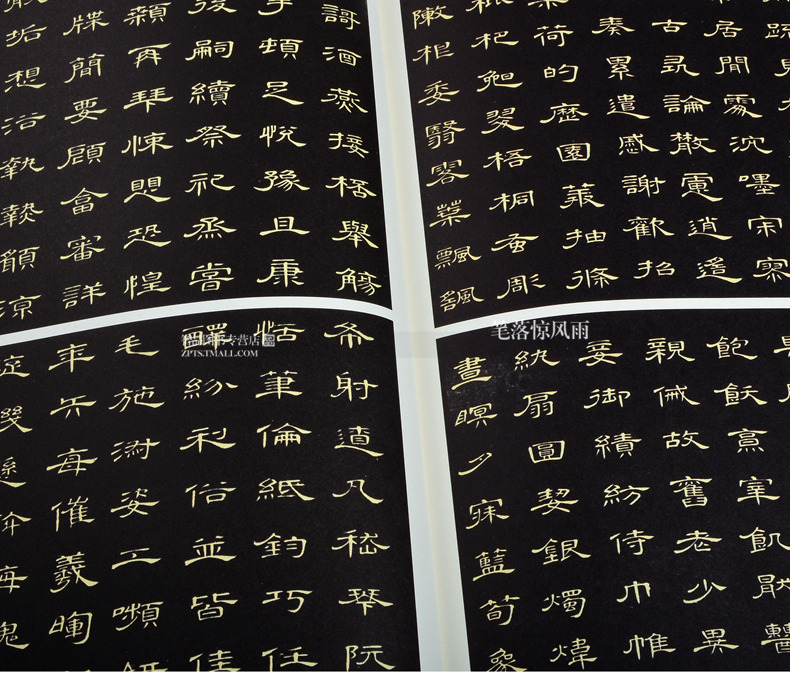 疏見
居閒處沈嚜宋寥
古尋論散慮逍遙
奏累遣感謝歡招
荷的歷園莽抽條
杷晚翠梧桐蚤彫
根委翳落葉飄颻
哥酒燕接桮舉觴
手頓足悅豫且康
後嗣續祭祀烝嘗
顙再拜悚懼恐惶
牒簡要顧畣審詳
垢想浴執熱願涼
飽飫亯宰飢厭
親戚故舊老少異
妾御績紡侍巾帷
紈扇圓絜銀燭煒
晝瞑夕寐藍筍象
布射遼丸嵇琴阮
恬筆倫紙鈞巧任
釋紛利俗並皆佳
毛施淑姿工顰妍
年矢每催羲暉
旋幾縣斡晦魄
专营店
ZPTS.TMALL.COM
笔落惊风雨